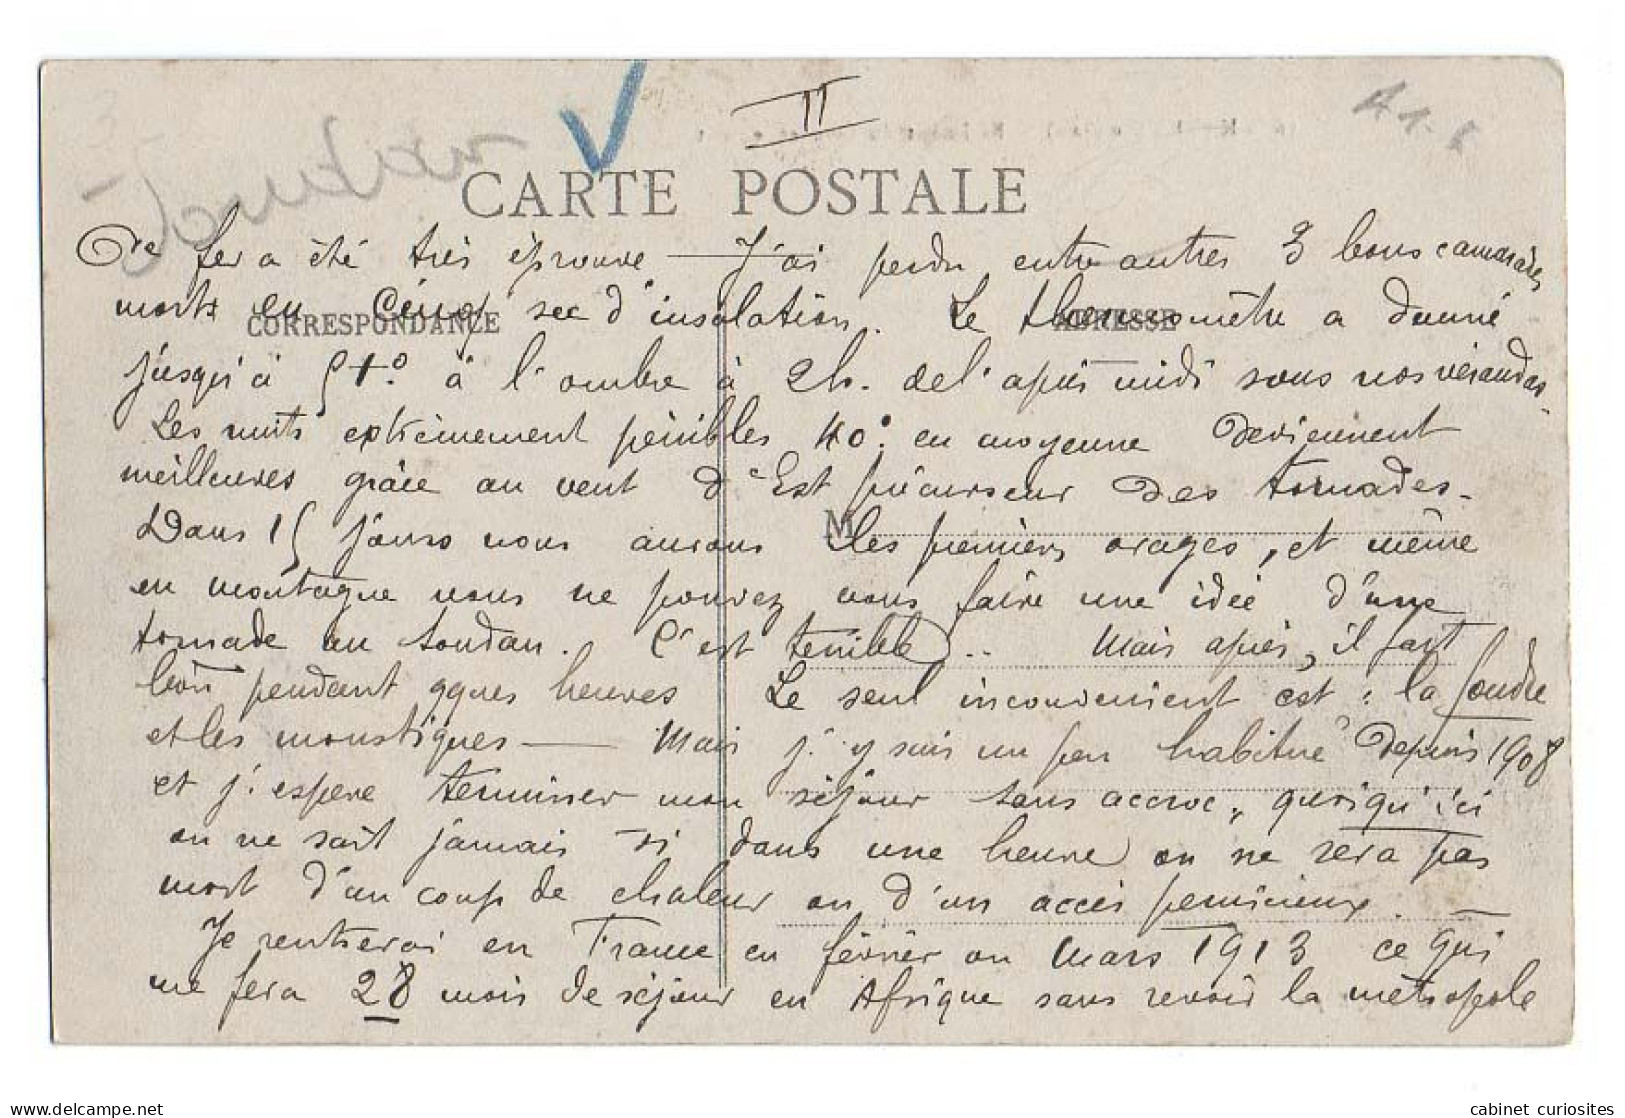 II
CARTE POSTALE
de fer a été très éprouvé — J'ai perdu entre autres 3 bons camarades
morts en cinq sec d'insolation. Le thermomètre a donné
CORRESPONDANCE
ADRESSE
jusqu'à 51° à l'ombre à 2h. de l'après midi sous nos vérandas.
Les nuits extrèmement pénibles 40° en moyenne deviennent
meilleures grâce au vent d'Est précurseur des tornades.
M
Dans 15 jours nous aurons les premiers orages, et même
en montagne vous ne pouvez vous faire une idée d'une
tornade au Soudan. C'est terrible.. Mais après, il fait
bon pendant qques heures Le seul inconvenient c'est : la foudre
et les moustiques — Mais j'y suis un peu habitué depuis 1908
et j'espere terminer mon séjour sans accroc, quoiqu'ici
on ne sait jamais si dans une heure on ne sera pas
mort d'un coup de chaleur ou d'un accès pernicieux. —
Je rentrerai en France en février ou Mars 1913 ce qui
me fera 28 mois de séjour en Afrique sans revoir la métropole
cabinet_curiosites